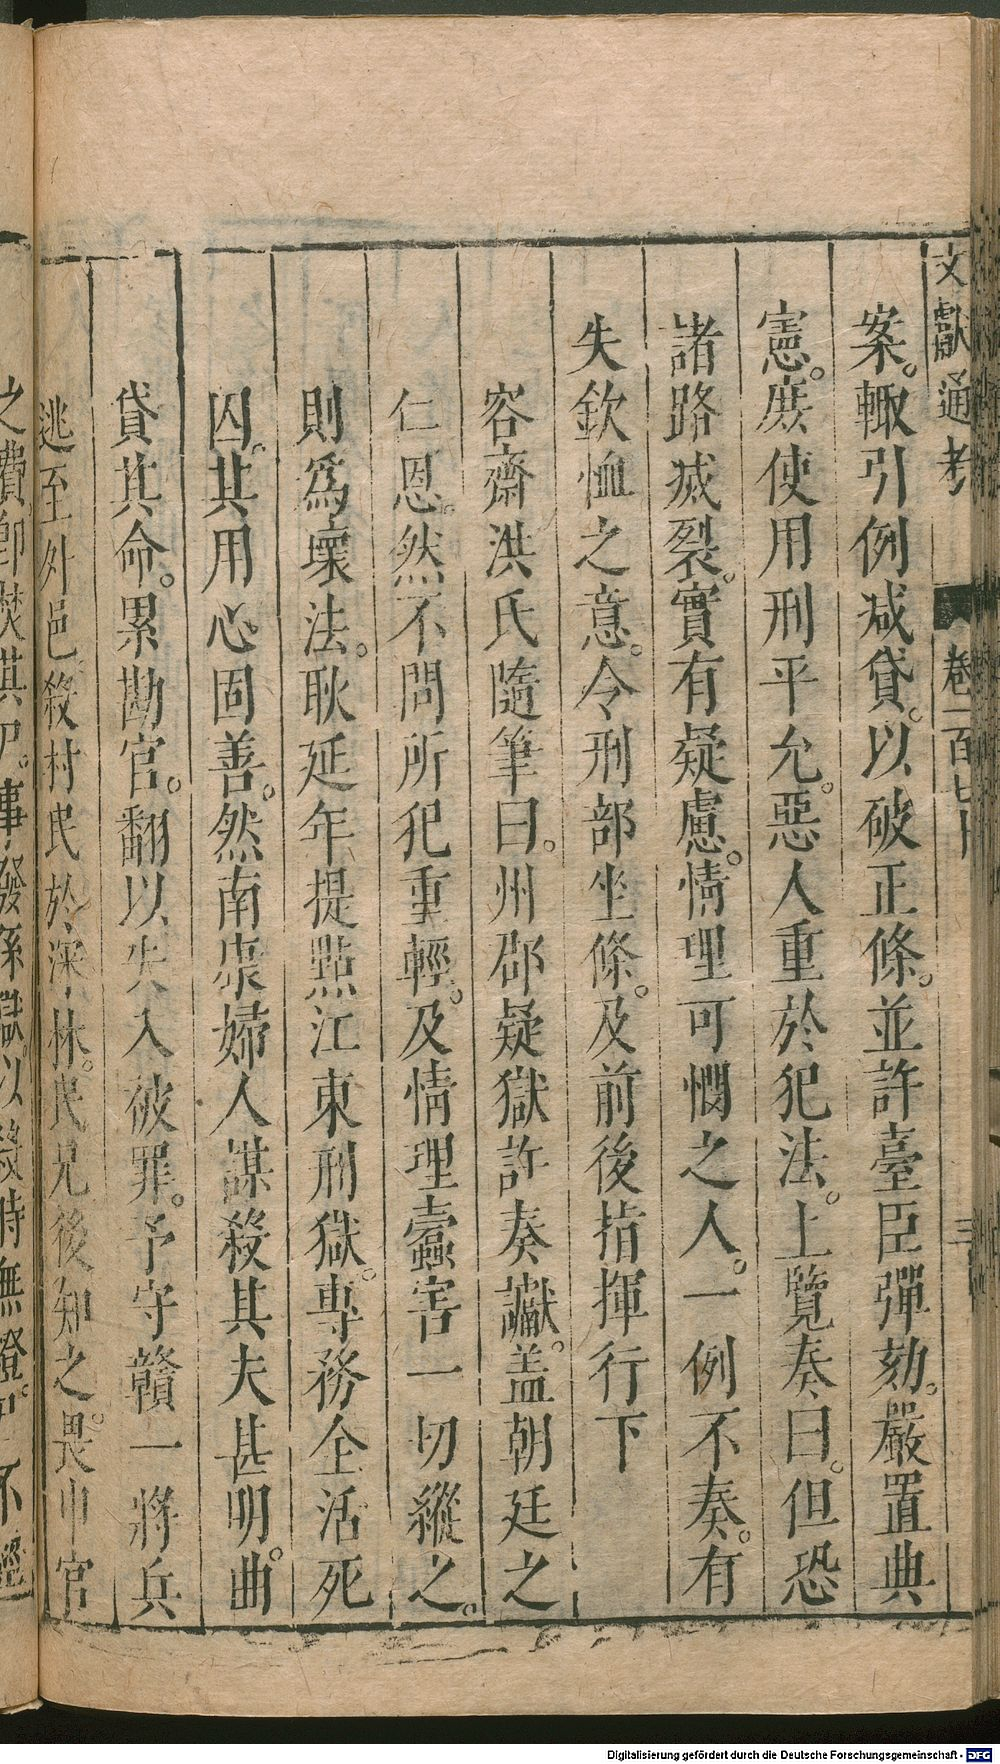 文獻通考 卷一百七十 三
案。輙引例减貸。以破正條。並許臺臣彈劾。嚴置典
憲。庻使用刑平允。惡人重於犯法。上覽奏曰。但恐
諸路㓕裂。實有疑慮。情理可憫之人。一例不奏。有
失欽恤之意。令刑部坐條。及前後指揮行下
容齋洪氏隨筆曰。州郡疑獄許奏讞。盖朝廷之
仁恩。然不問所犯重輕。及情理蠹害一切縱之。
則爲壞法。耿延年提㸃江東刑獄。專務全活死
囚。其用心固善。然南康婦人謀殺其夫甚明。曲
貸其命。累勘官。翻以失入被罪。予守贛一將兵
逃至外邑。殺村民於深林。民兄後知之。畏申官
之費。卽焚其尸。事發係獄。以殺時無證。尸不經
Digitalisierung gefördert durch die Deutsche Forschungsgemeinschaft - DFG